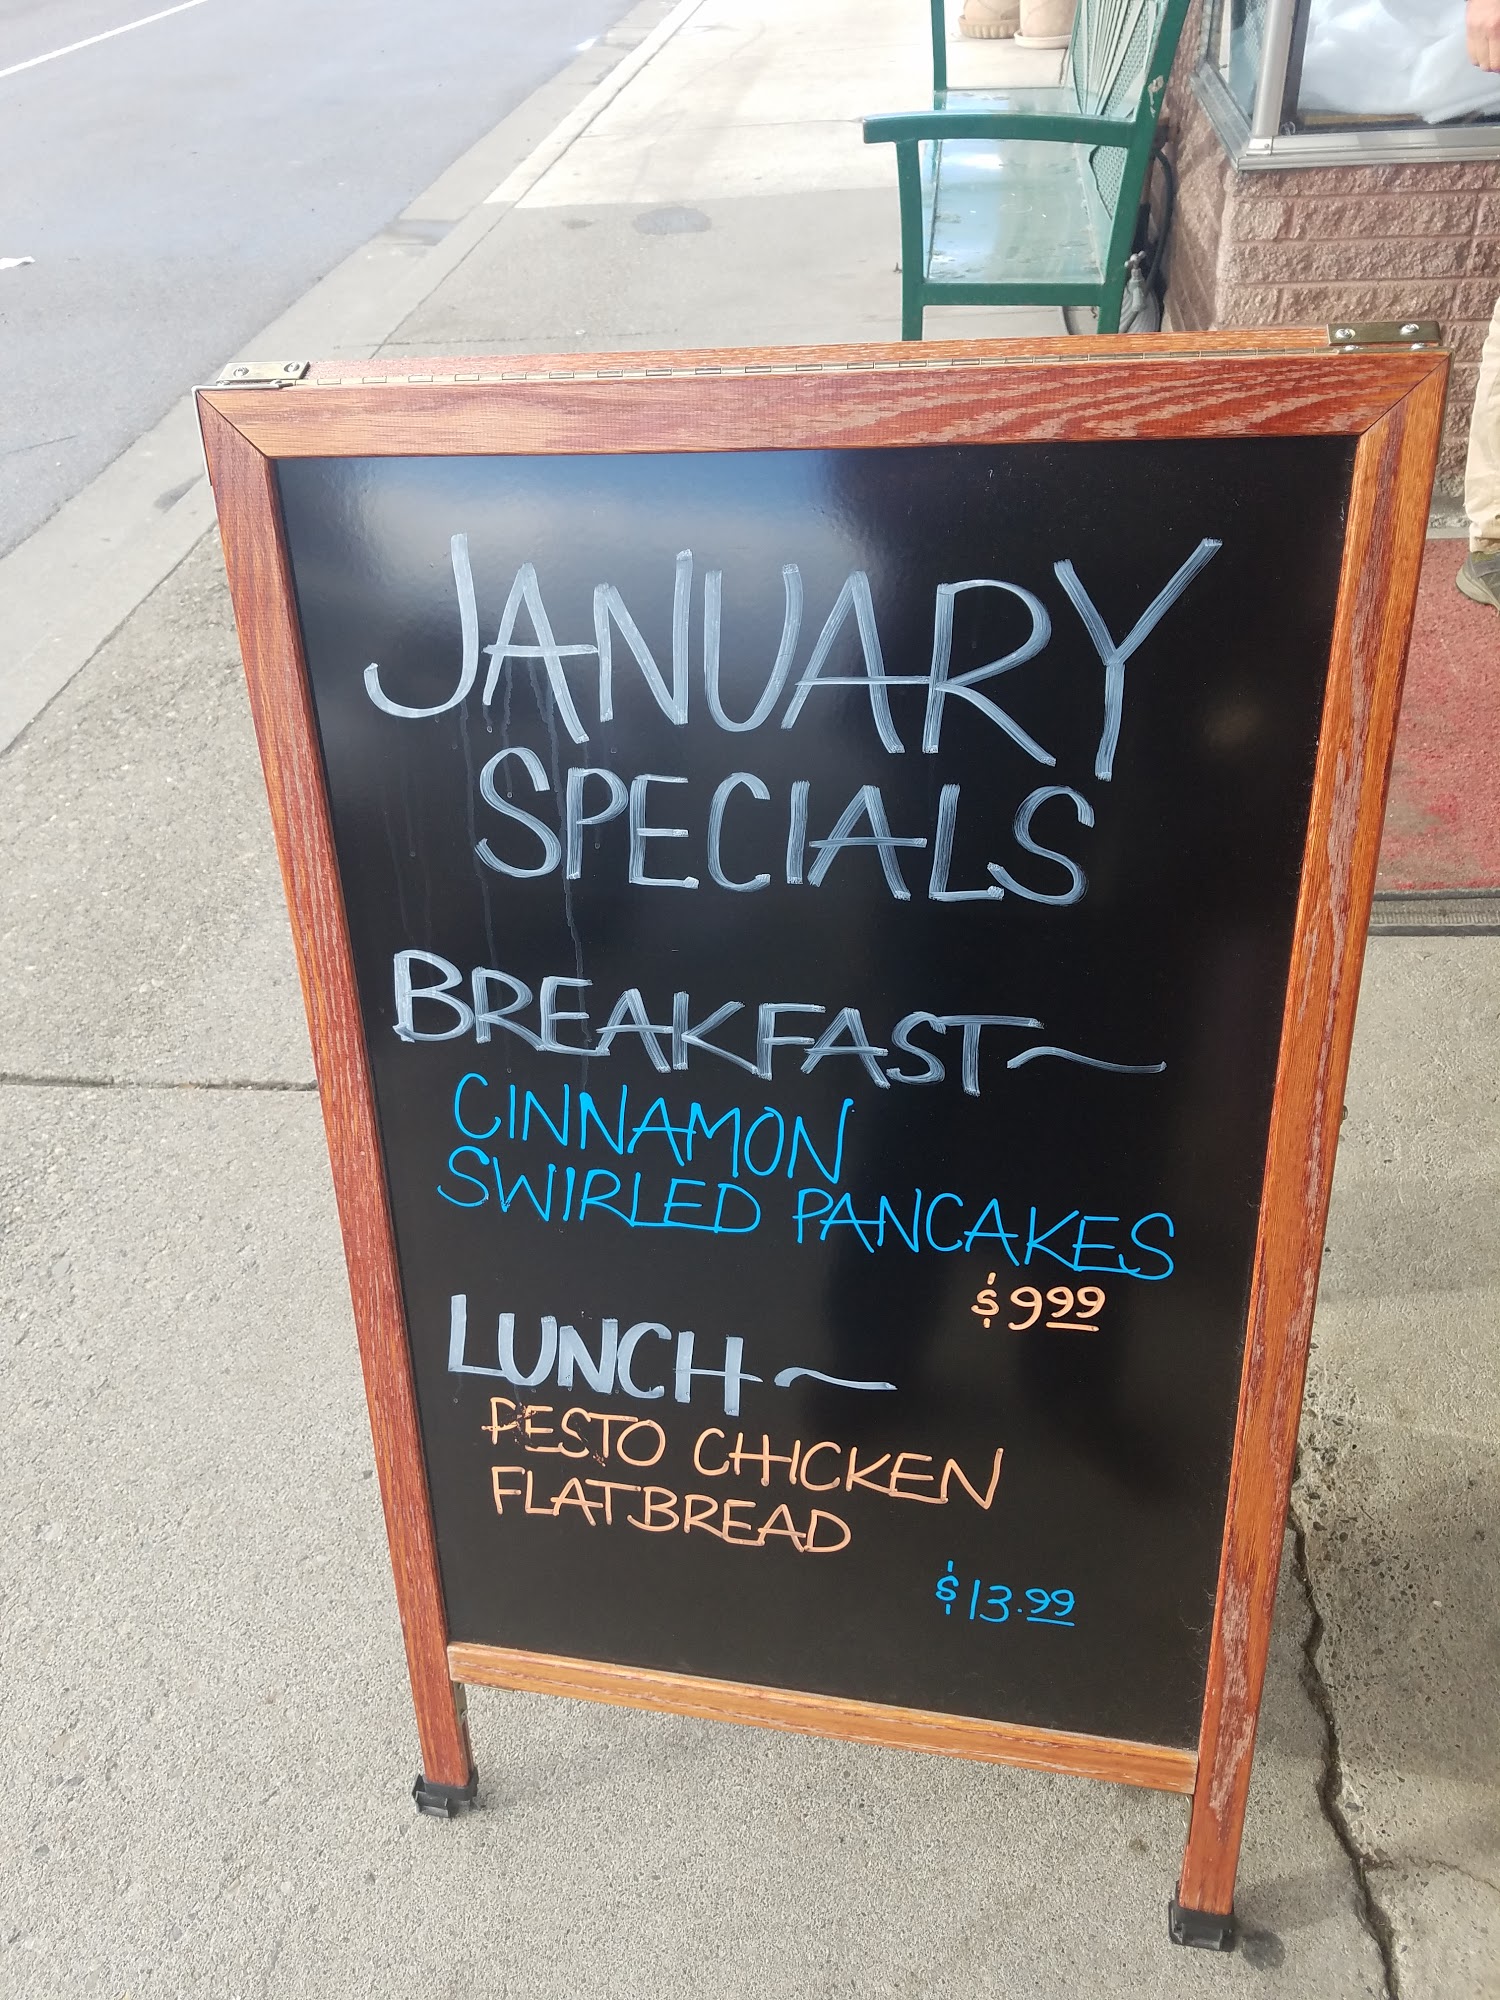 JANUARY
SPECIALS
BREAKFAST~
CINNAMON
SWIRLED PANCAKES
$9 99
LUNCH~
PESTO CHICKEN
FLATBREAD
$13.99